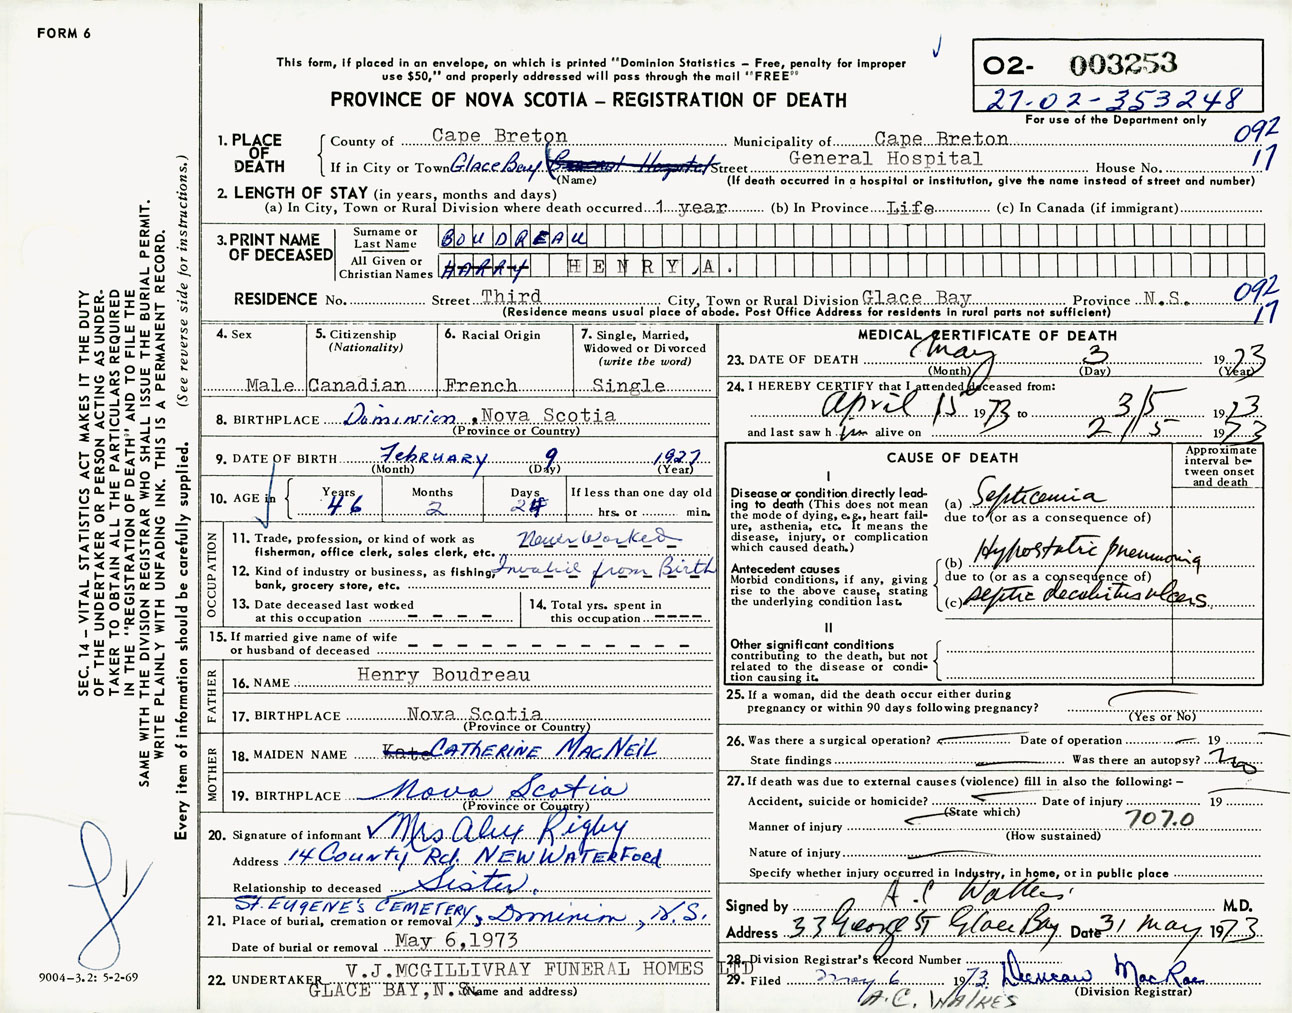 FORM 6
This form, if placed in an envelope, on which is printed "Dominion Statistics – Free, penalty for improper
use $50," and properly addressed will pass through the mail "FREE"
PROVINCE OF NOVA SCOTIA – REGISTRATION OF DEATH
O2- 003253
27-02-353248
For use of the Department only
092
17
1. PLACE OF DEATH
County of Cape Breton Municipality of Cape Breton
If in City or Town Glace Bay General Hospital Street General Hospital House No.
(Name) (If death occurred in a hospital or institution, give the name instead of street and number)
2. LENGTH OF STAY (in years, months and days)
(a) In City, Town or Rural Division where death occurred 1 year (b) In Province Life (c) In Canada (if immigrant)
3. PRINT NAME OF DECEASED
Surname or Last Name BOUDREAU
All Given or Christian Names HARRY HENRY,A.
RESIDENCE No. Street Third City, Town or Rural Division Glace Bay Province N.S.
092
17
(Residence means usual place of abode. Post Office Address for residents in rural parts not sufficient)
4. Sex
Male
5. Citizenship
(Nationality)
Canadian
6. Racial Origin
French
7. Single, Married,
Widowed or Divorced
(write the word)
Single
8. BIRTHPLACE Dominion, Nova Scotia
(Province or Country)
9. DATE OF BIRTH February 9 1927
(Month) (Day) (Year)
10. AGE in
Years 46
Months 2
Days 24
If less than one day old
hrs. or min.
OCCUPATION
11. Trade, profession, or kind of work as
fisherman, office clerk, sales clerk, etc. Never Worked
12. Kind of industry or business, as fishing, Invalid from Birth
bank, grocery store, etc.
13. Date deceased last worked
at this occupation
14. Total yrs. spent in
this occupation
15. If married give name of wife
or husband of deceased
FATHER
16. NAME Henry Boudreau
17. BIRTHPLACE Nova Scotia
(Province or Country)
MOTHER
18. MAIDEN NAME Kate CATHERINE MacNEIL
19. BIRTHPLACE Nova Scotia
(Province or Country)
20. Signature of informant Mrs Alex Rigby
Address 14 County Rd. NEW WATERFORD
Relationship to deceased Sister.
ST. EUGENE'S CEMETERY
21. Place of burial, cremation or removal Dominion, N.S.
Date of burial or removal May 6,1973
22. UNDERTAKER V.J.MCGILLIVRAY FUNERAL HOMES LTD
GLACE BAY,N.S. (Name and address)
MEDICAL CERTIFICATE OF DEATH
23. DATE OF DEATH May 3 1973
(Month) (Day) (Year)
24. I HEREBY CERTIFY that I attended deceased from:
April 15 1973 to 3/5 1973
and last saw him alive on 2/5 1973
CAUSE OF DEATH
Approximate
interval be-
tween onset
and death
I
Disease or condition directly lead-
ing to death (This does not mean
the mode of dying, e.g., heart fail-
ure, asthenia, etc. It means the
disease, injury, or complication
which caused death.)
(a) Septicemia
due to (or as a consequence of)
Antecedent causes
Morbid conditions, if any, giving
rise to the above cause, stating
the underlying condition last.
(b) Hypostatic pneumonia
due to (or as a consequence of)
(c) septic decubitus ulcers
II
Other significant conditions
contributing to the death, but not
related to the disease or condi-
tion causing it.
25. If a woman, did the death occur either during
pregnancy or within 90 days following pregnancy?
(Yes or No)
26. Was there a surgical operation? Date of operation 19
State findings Was there an autopsy? No
27. If death was due to external causes (violence) fill in also the following: –
Accident, suicide or homicide? Date of injury 19
(State which)
Manner of injury 707.0
(How sustained)
Nature of injury
Specify whether injury occurred in Industry, in home, or in public place
Signed by A.C Walkes M.D.
Address 33 George St Glace Bay Date 31 May 1973
28. Division Registrar's Record Number
29. Filed May 6 1973. Duncan MacRae
(Division Registrar)
A.C. WALKES
SEC. 14 – VITAL STATISTICS ACT MAKES IT THE DUTY
OF THE UNDERTAKER OR PERSON ACTING AS UNDER-
TAKER TO OBTAIN ALL THE PARTICULARS REQUIRED
IN THE "REGISTRATION OF DEATH" AND TO FILE THE
SAME WITH THE DIVISION REGISTRAR WHO SHALL ISSUE THE BURIAL PERMIT.
WRITE PLAINLY WITH UNFADING INK. THIS IS A PERMANENT RECORD.
Every item of information should be carefully supplied. (See reverse side for instructions.)
9004-3.2: 5-2-69